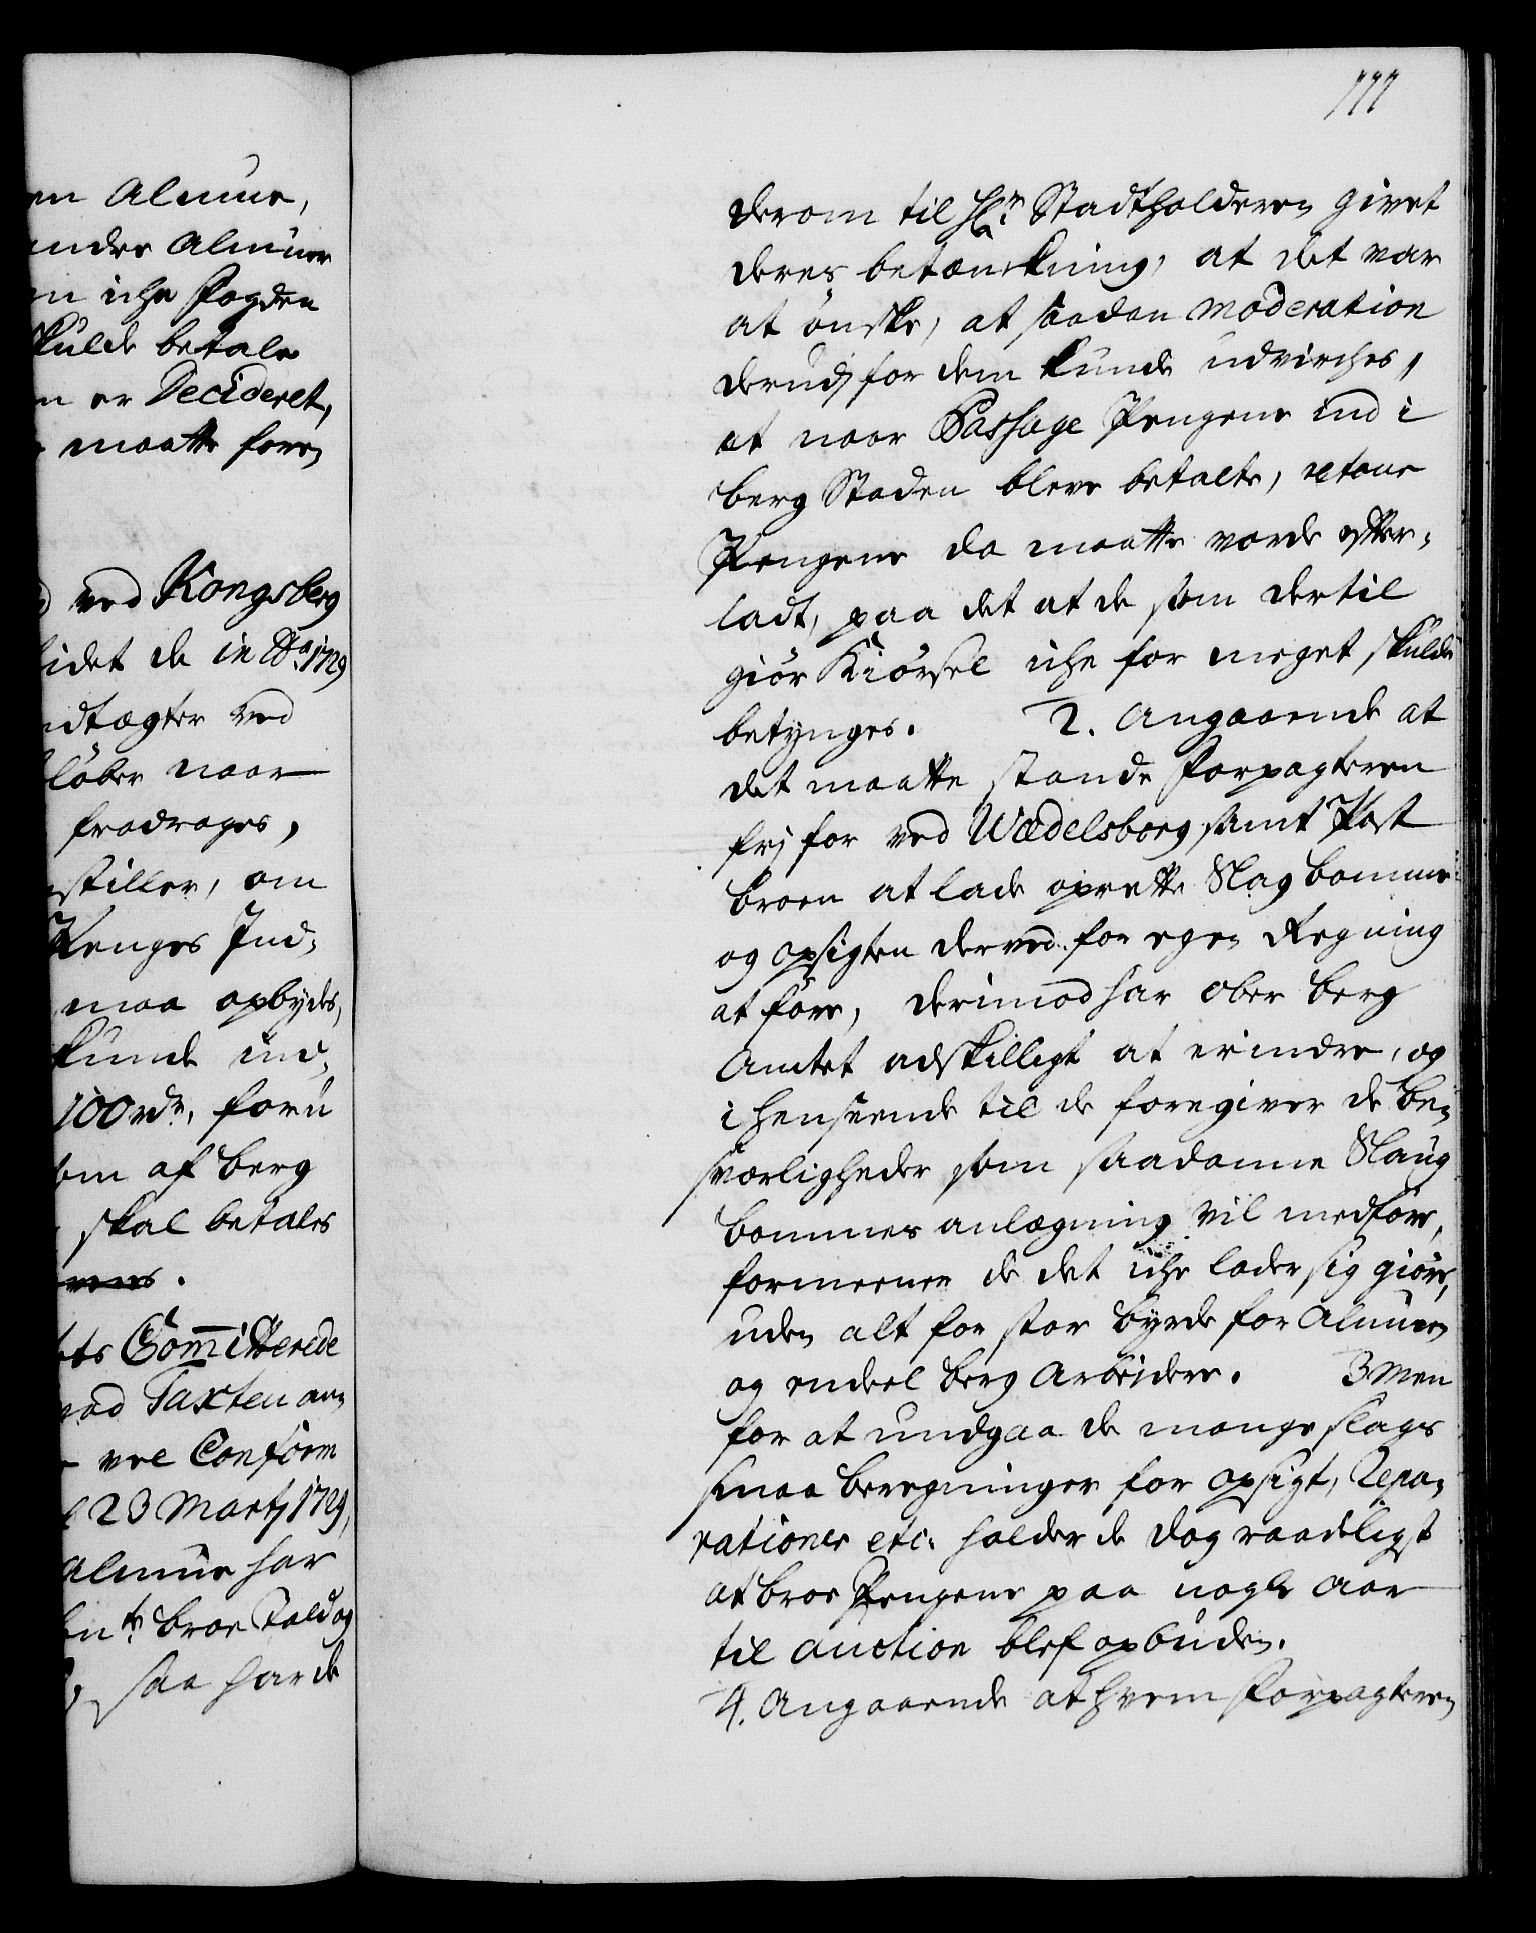 en Almue,
andre Almuer
en iche Fogden
skulde betale
n er Decideret,
maatte foren
ved Kongsberg
in Ao 1729
ndtægter ved
löber naar
fradrages,
stiller, om
Penges Ind-
maa opbydes,
kunde ind-
100 rdr. foru
om af Berg
skal betales
ets Committerede
Taxten an-
vel Conform
23 Martj 1729,
Almue har
broe Told og
saa har de
777
derom til Hr. Stadtholderen givet
deres betænckning, at det var
at önske, at saadan moderation
derudj for dem kunde udvirches,
at naar Passage Pengene ind i
berg Staden bleve betalte, retour
Pengene da maatte vorde efter-
ladt, paa det at de som dertil
giör Kiörsel iche for meget skulde
betynges. 2. Angaaende at
det maatte stande Forpagteren
frj for ved Wædelsborg samt Post
broen at lade oprette Slag bomme
og opsigten derved for egen Regning
at före, derimod har Ober Berg
Amtet adskilligt at erindre, og
i henseende til de foregiver de be-
sværligheder som saadanne Slaug
bommes anlægning vil medföre,
formeener de det iche lader sig giöre,
uden alt for stor byrde for Almuen
og endeel berg Arbeidere. 3 Men
for at undgaa de mange slags
smaa beregninger for opsigt, Repa-
rationer etc: holder de dog raadeligst
at broe Pengene paa nogle Aar
til auction blef opbuden.
4. Angaaende at hvem Forpagteren